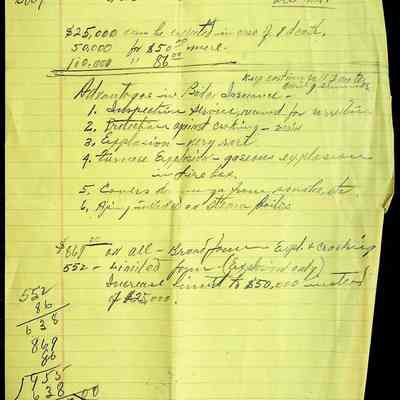 $25,000 can be expected in case of 1 death.
50,000 for $50.00 more.
100,000 " 86.00
Advantages in Boiler Insurance -
1. Inspection Service, round for
2. Protection against cracking -
3. Explosion - very rare
4. Furnace Explosion - gaseous explosion
in fire box.
5. Covers damage from smoke, etc.
6. Piping included on Steam Boiler
$869.00 on all - Broad Form - Expl. & Cracking
552 - Limited form (Explosion only)
Increase limit to $50,000 instead
of $25,000.
552
86
638
869
86
955
638